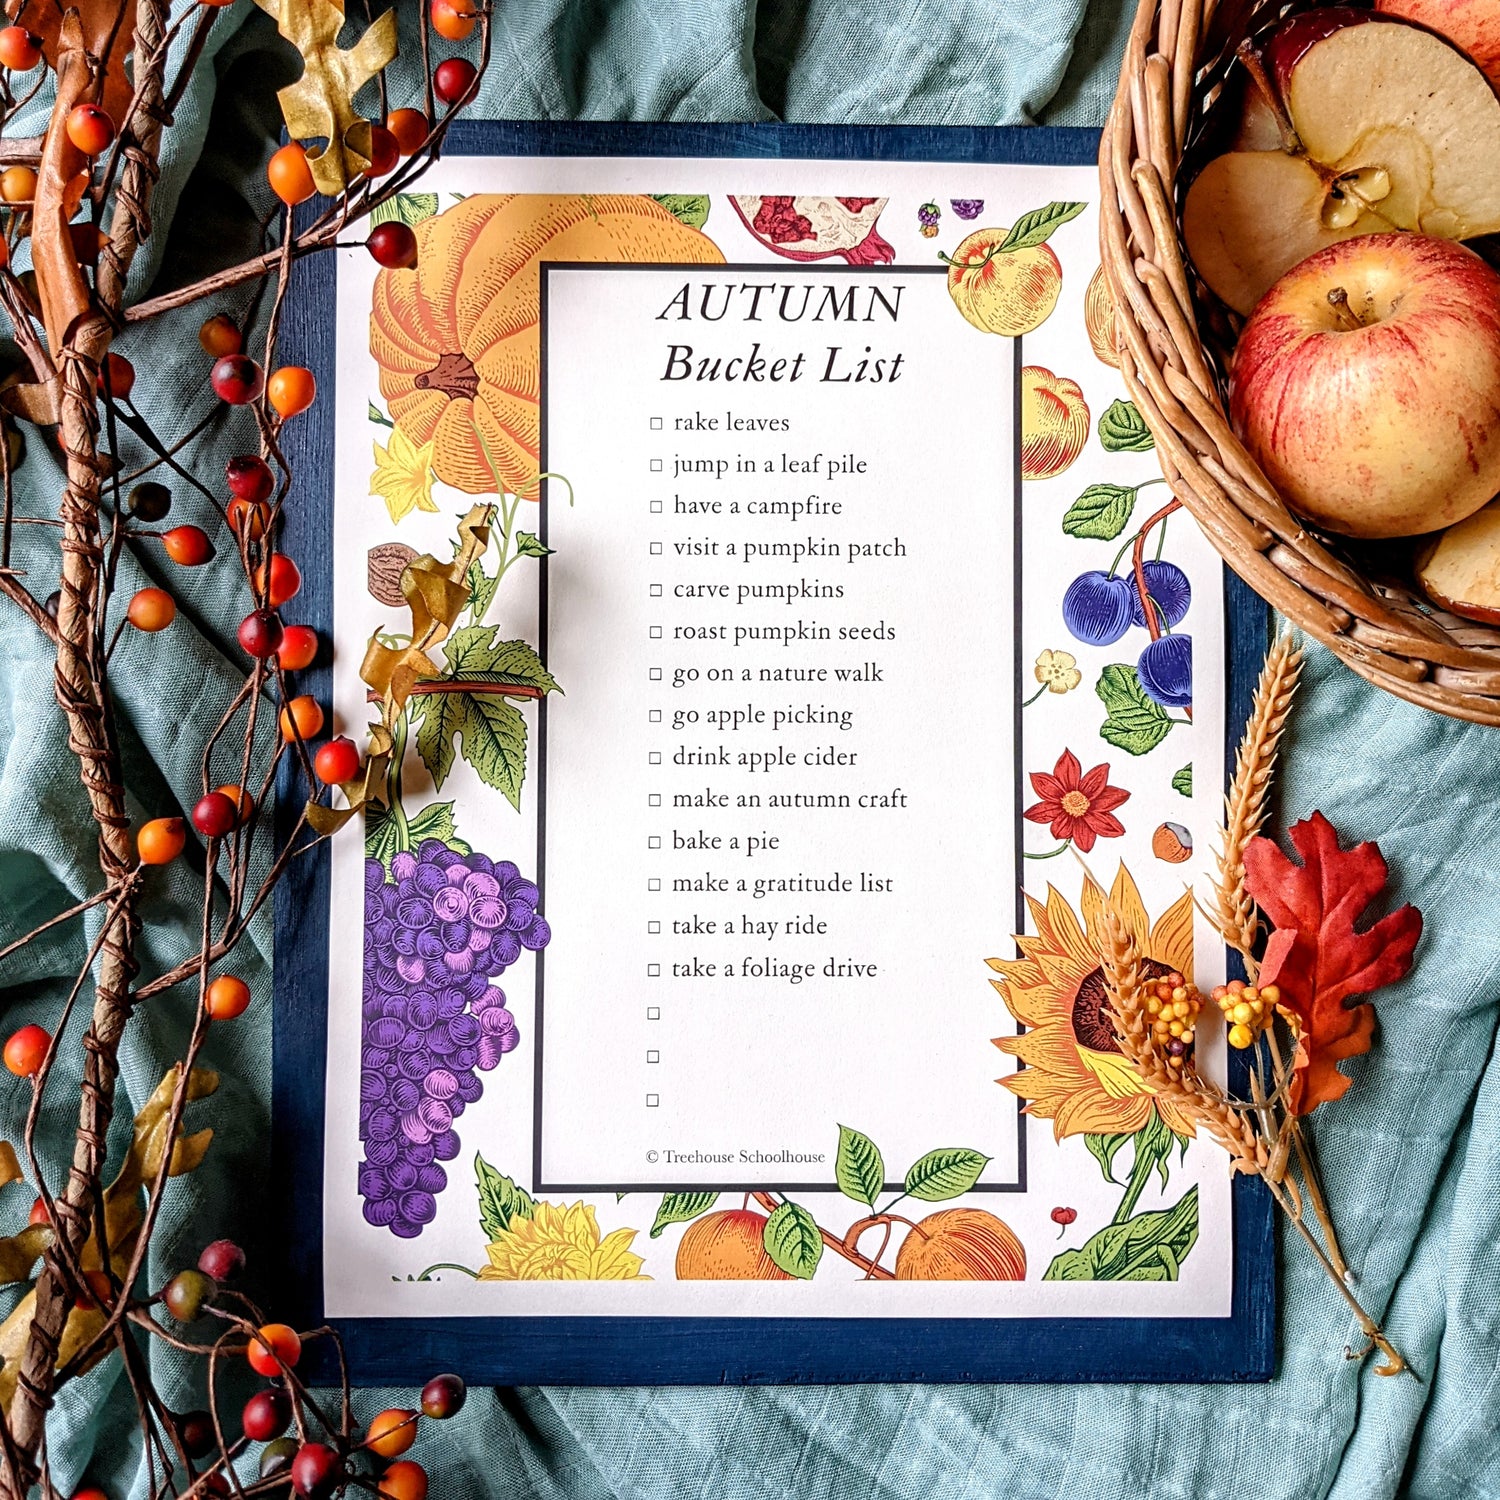 AUTUMN
Bucket List
□ rake leaves
□ jump in a leaf pile
□ have a campfire
□ visit a pumpkin patch
□ carve pumpkins
□ roast pumpkin seeds
□ go on a nature walk
□ go apple picking
□ drink apple cider
□ make an autumn craft
□ bake a pie
□ make a gratitude list
□ take a hay ride
□ take a foliage drive
□
□
□
© Treehouse Schoolhouse